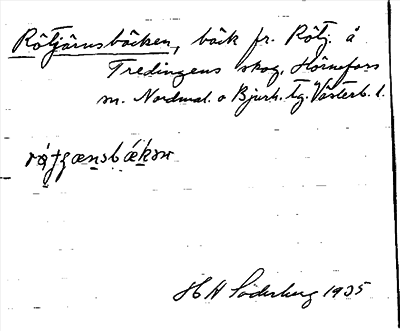 Rötjärnsbäcken, bäck fr. Rötj. å
Tredingens skog, Hörnefors
sn. Nordmal. o Bjurh. tg. Västerb. l.
H H Söderberg 1935